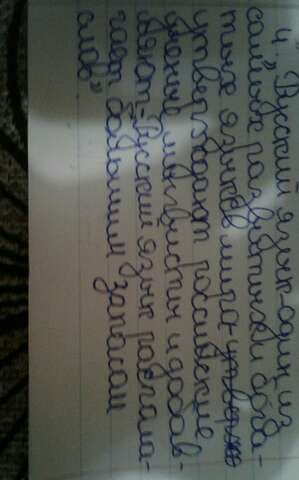 4. "Русский язык-один из
самых развитых и бога-
тых языков мира-
утверждают российские
ученые, лингвисты и добав-
ляют-"Русский язык распола-
гает большим запасом
слов"